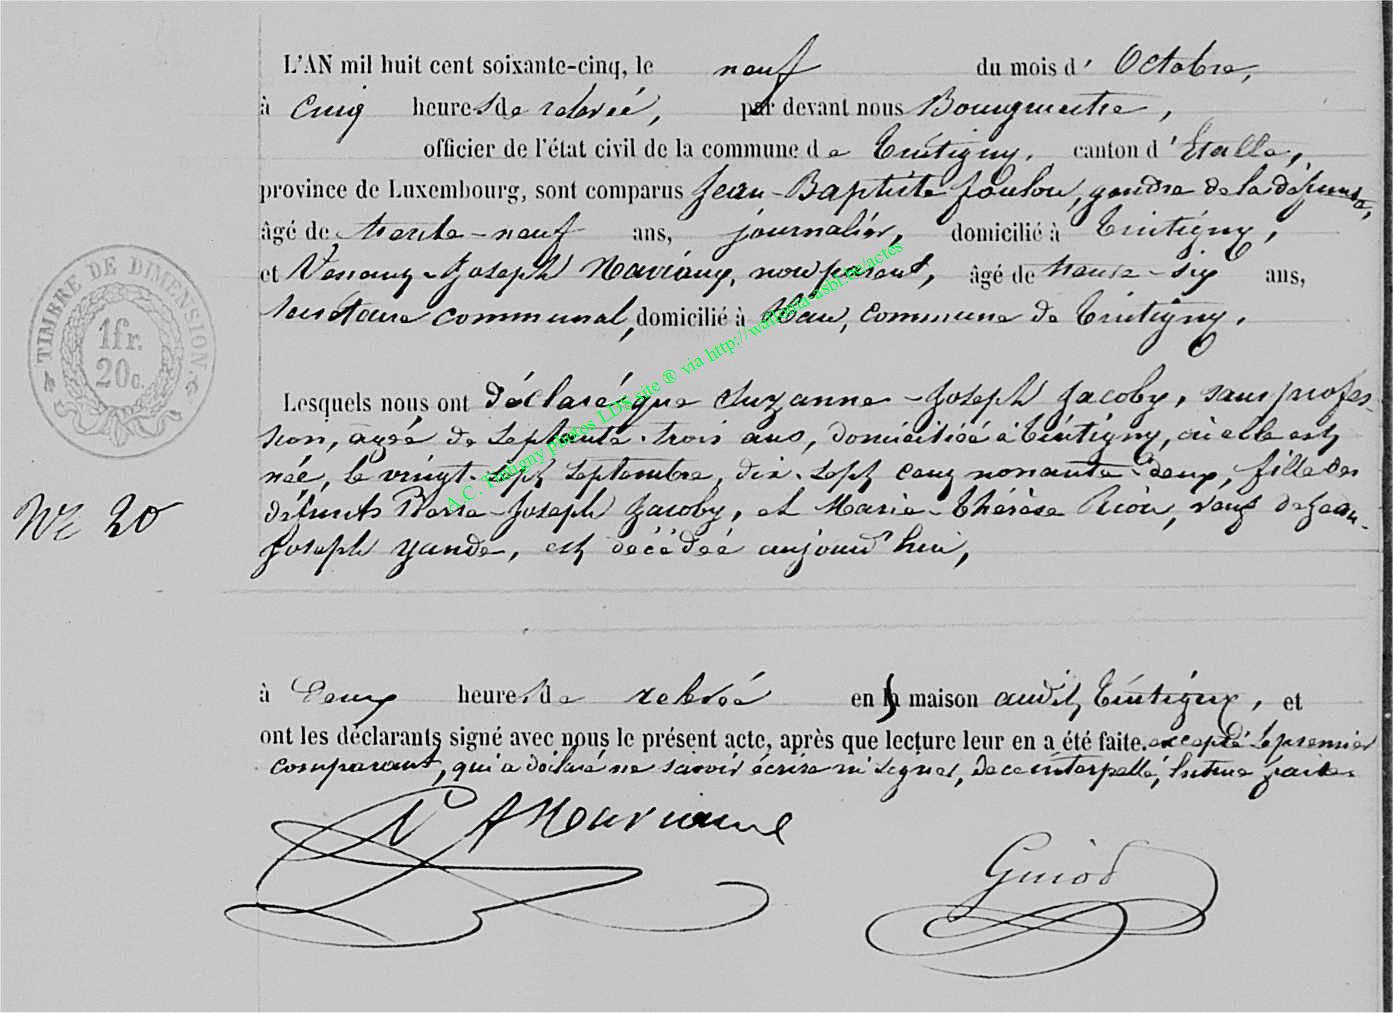 L'AN mil huit cent soixante-cinq, le neuf du mois d' Octobre,
à cinq heures de relevée, par devant nous Bourgmestre,
officier de l'état civil de la commune de Tintigny, canton d'Etalle,
province de Luxembourg, sont comparus Jean-Baptiste Foulon, gendre de la défunte,
âgé de trente-neuf ans, journalier, domicilié à Tintigny,
et Joseph non parent, âgé de trente-six ans,
communal, domicilié à Han, commune de Tintigny.
TIMBRE DE DIMENSION.
1fr.
20c.
Lesquels nous ont déclaré que Suzanne-Joseph Jacoby, sans profes-
sion, agée de septente-trois ans, domiciliée à Tintigny, où elle est
née, le vingt-sept septembre, dix-sept cent nonante-deux, fille des
défunts Pierre-Joseph Jacoby, et Marie-Thérèse veuve de Jean-
Joseph Yande, est décédée aujourd'hui,
Nº 20
à deux heures de relevée en sa maison audit Tintigny, et
ont les déclarants signé avec nous le présent acte, après que lecture leur en a été faite. excepté le premier
comparant, qui a déclaré ne savoir écrire ni signer, de ce interpellé, lecture faite.
Guiod
A.C. Tintigny photos LDS site ® via http://wallonia-asbl.be/actes